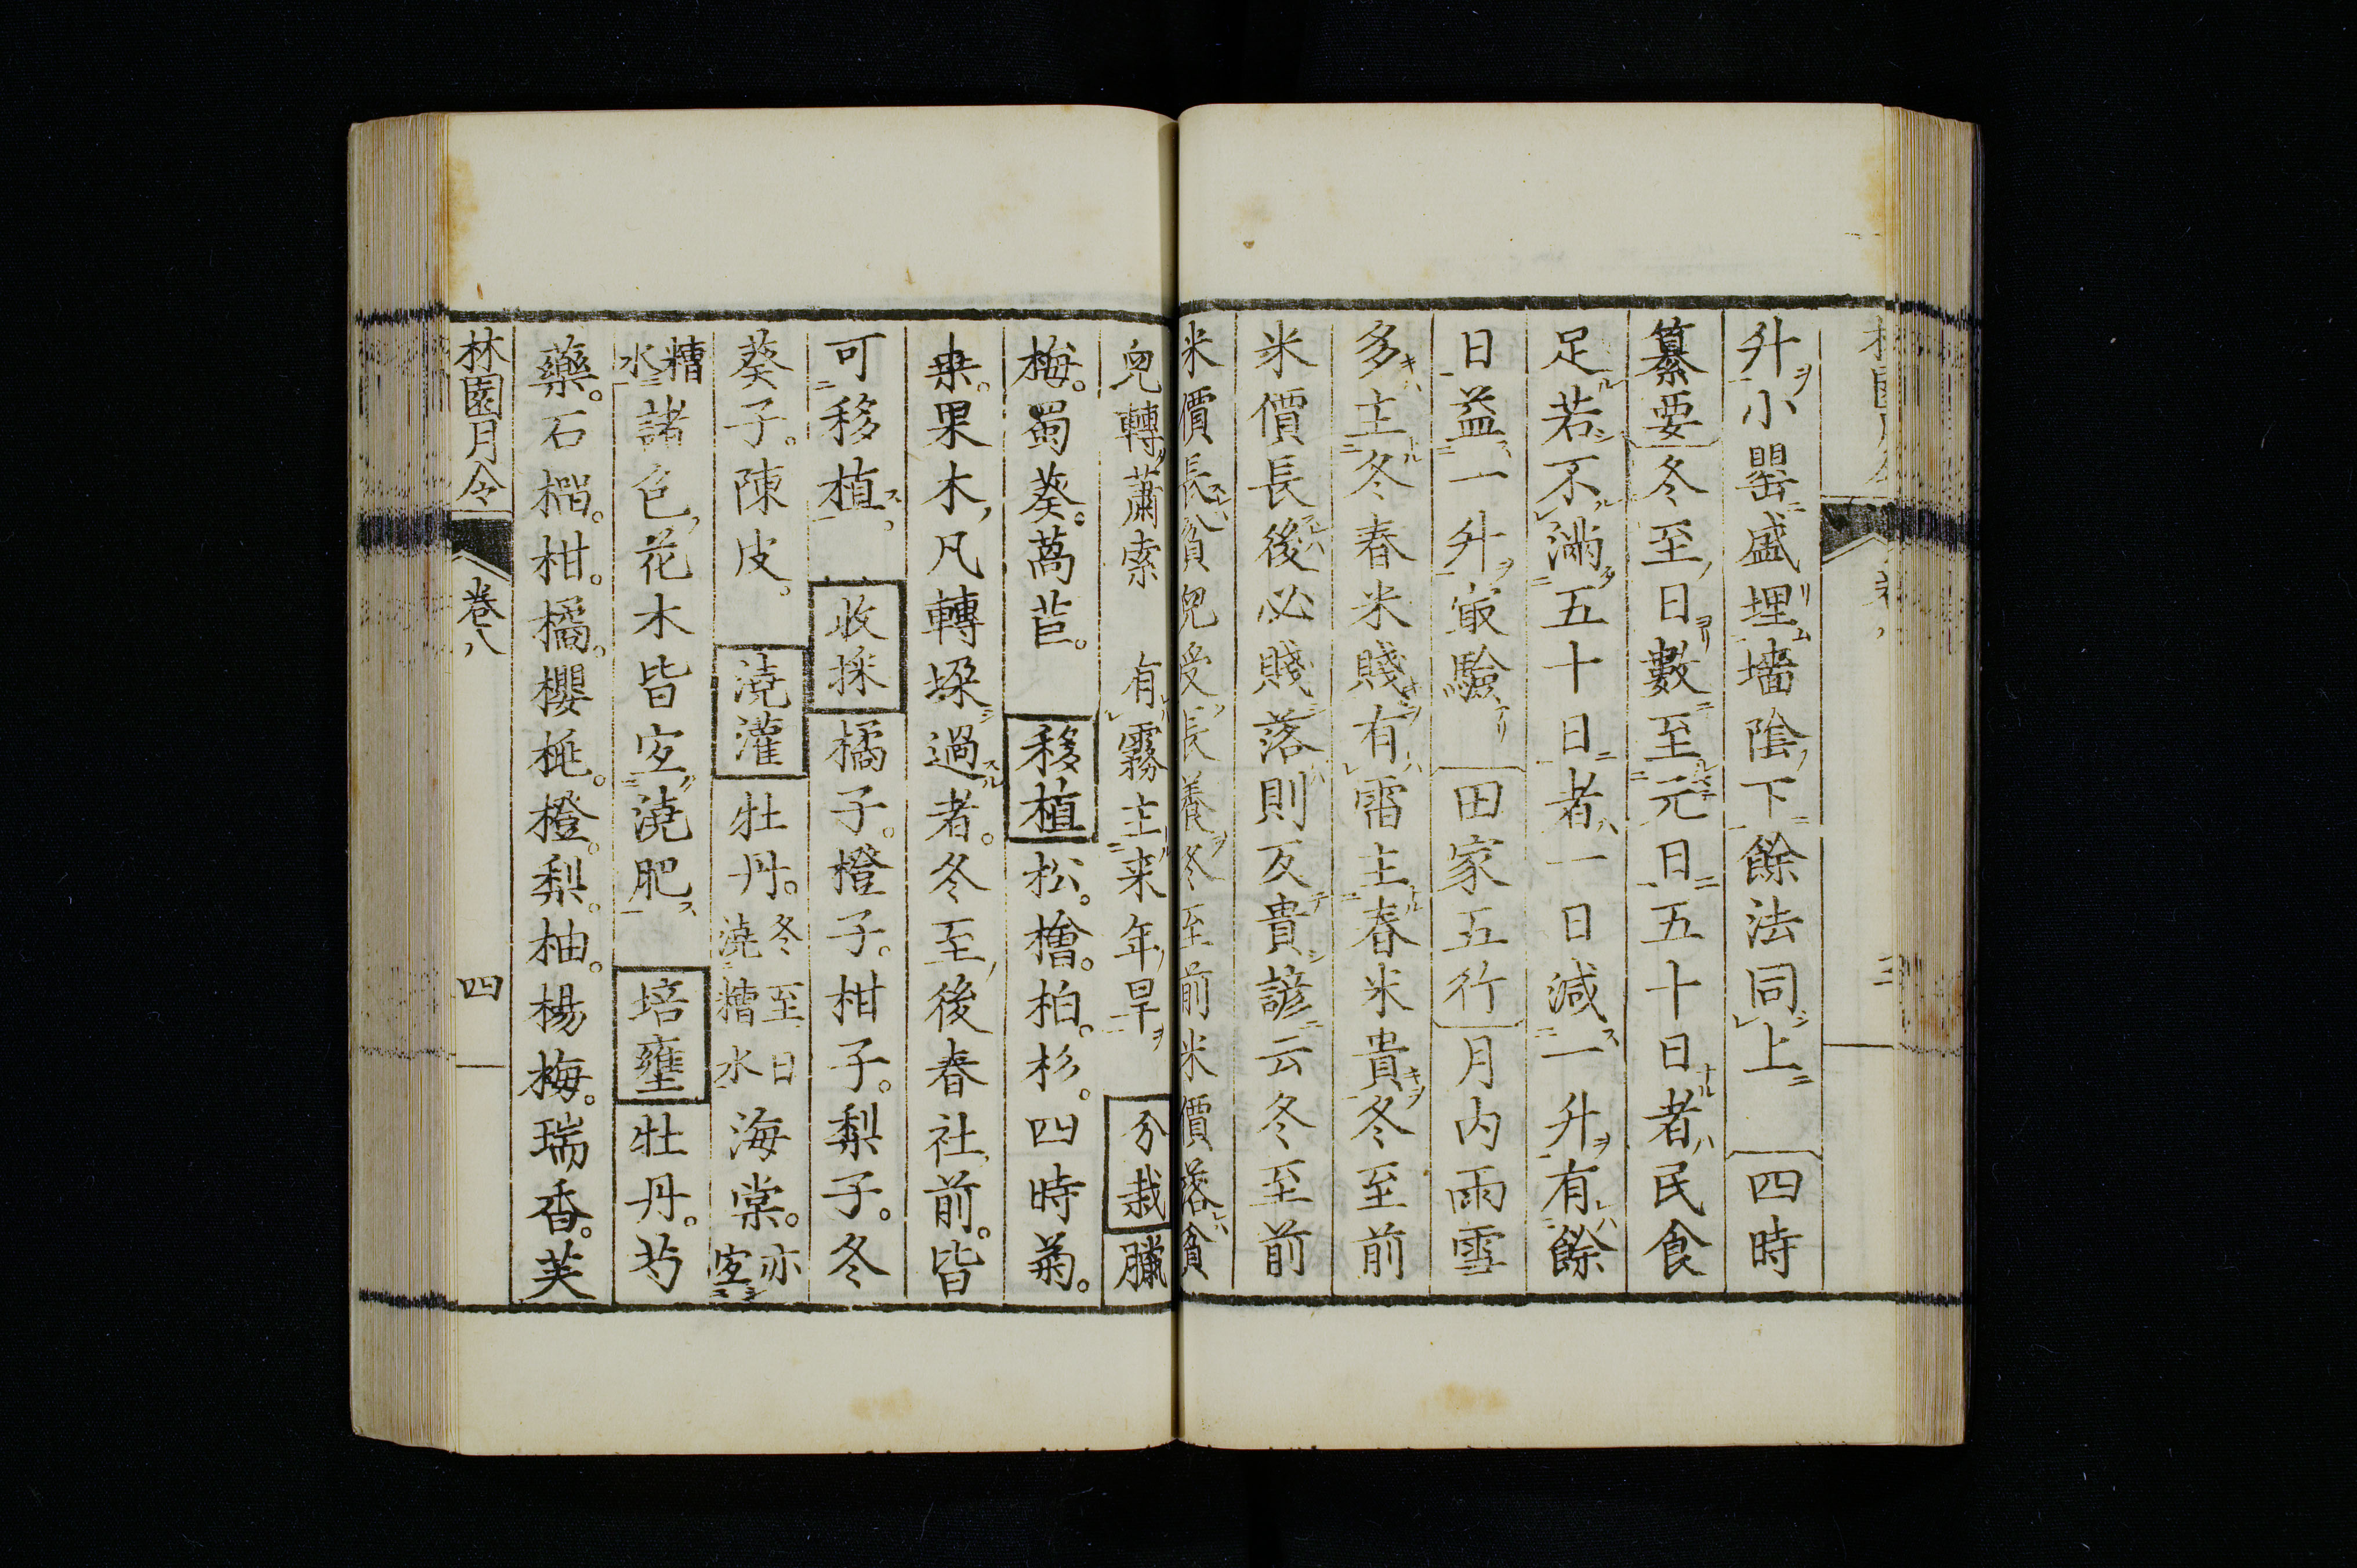 升小罌盛埋墻陰下餘法同上 四時
纂要冬至日數至元日五十日者民食
足若不滿五十日者一日減一升有餘
日益一升㝡驗 田家五行月内雨雪
多主冬春米賤有雷主春米貴冬至前
米價長後必賤落則反貴諺云冬至前
米價長貧兒受長養冬至前米價落貧
兒轉蕭索 有霧主来年旱 分栽臘
梅。蜀葵。萵苣。 移植松。檜。柏。杉。四時菊。
桒。果木凡轉垜過者。冬至後春社前。皆
可移植。 收採橘子。橙子。柑子。梨子。冬
葵子。陳皮。 澆灌牡丹。冬至日澆糟水海棠。亦宐
糟水諸色花木皆宐澆肥 培壅牡丹。芍
藥。石榴。柑。橘。櫻桃。橙。梨。柚。楊梅。瑞香。芙
林園月令 卷八 四